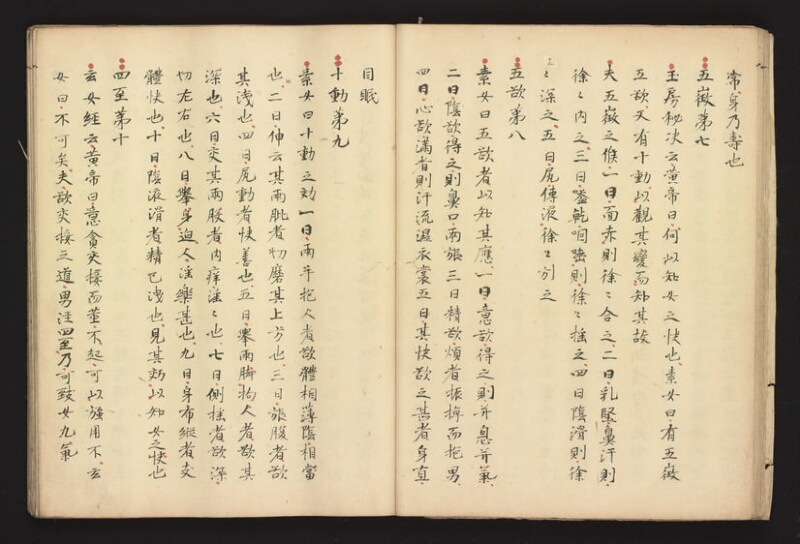 常身乃壽也
五徵第七
玉房秘决云黄帝曰何以知女之快也素女曰有五徵
五欲又有十動以觀其變而知其故
夫五徵之候一曰面赤則徐〻合之二曰乳堅鼻汗則
徐〻内之三曰嗌乾咽唾則徐〻摇之四曰陰滑則徐
〻深之五曰尻傳液徐〻引之
五欲第八
素女曰五欲者以知其應一曰意欲得之則并息并氣
二曰陰欲得之則鼻口兩張三曰精欲煩者振掉而抱男
四曰心欲滿者則汗流濕衣裳五曰其快欲之甚者身直
目眠
十動第九
素女曰十動之効一曰兩手抱人者欲體相薄陰相當
也二曰伸云其兩肶者切磨其上方也三曰張腹者欲
其淺也四曰尻動者快善也五曰舉兩脚拘人者欲其
深也六曰交其兩股者内痒淫〻也七曰側摇者欲深
切左右也八曰舉身迫人淫樂甚也九曰身布縱者支
體快也十曰陰液滑者精已洩也見其効以知女之快也
四至第十
玄女經云黄帝曰意貪交接而莖不起可以強用不玄
女曰不可矣夫欲交接之道男注四至乃可致女九氣